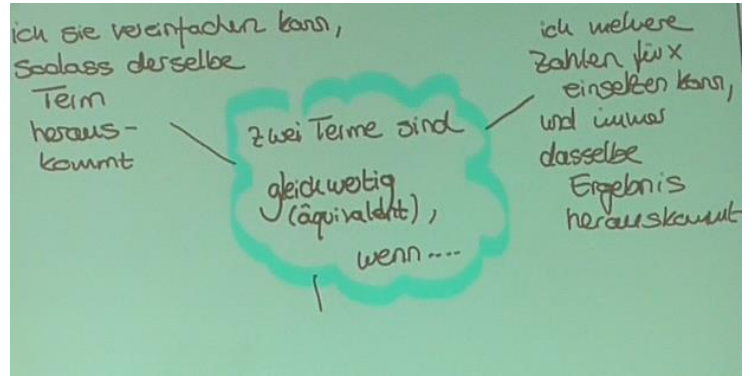 ich sie vereinfachen kann,
sodass derselbe
Term
heraus-
kommt
zwei Terme sind
gleichwertig
(äquivalent),
wenn....
ich mehrere
Zahlen für x
einsetzen kann,
und immer
dasselbe
Ergebnis
herauskommt